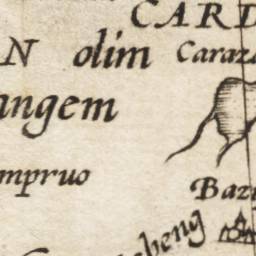 CARD
N olim Caraza
angem
mpruo
Bazi
beng